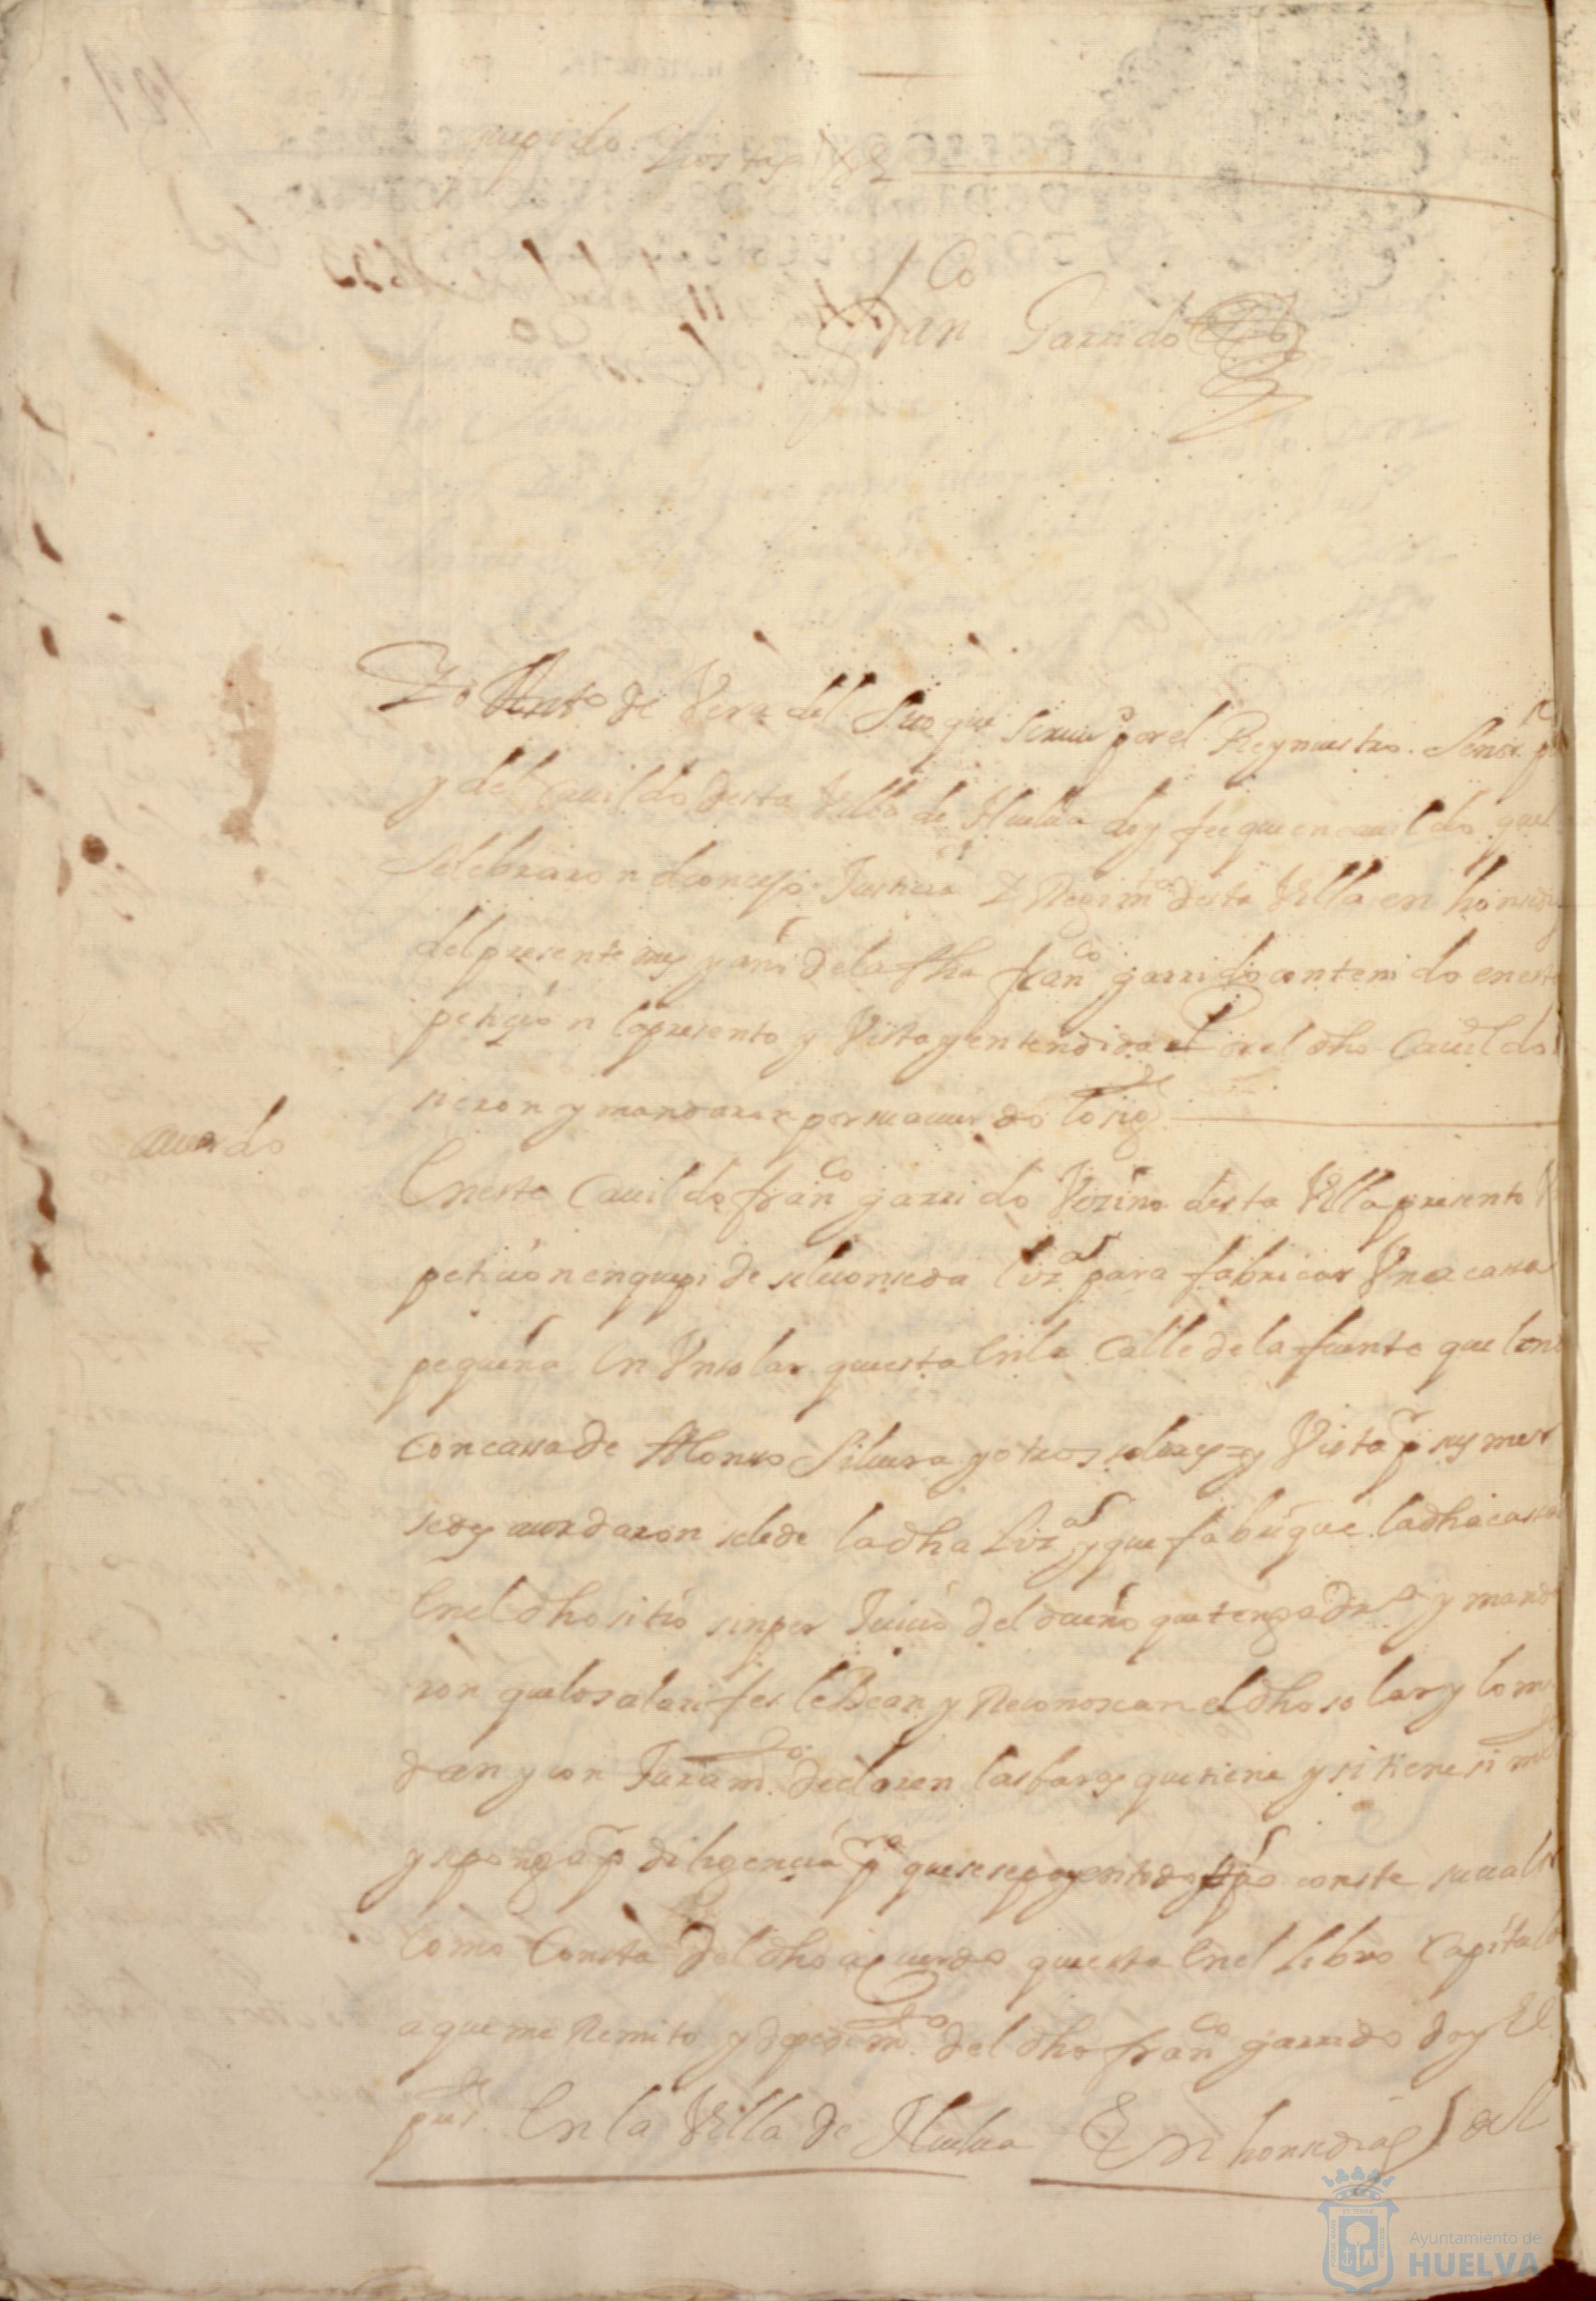 que pido Justs.ª &.ª
Fran.co Garrido
Yo de Vera del s.no que por el Rey nuestro Señor
y del cauildo desta Villa de Huelua doy fee que en cauildo que
selebraron el concejo Justicia y Regim.to desta Villa en honse
del presente mes y año de la fha fran.co garrido contenido en esta
petiçion la presento y Vista y entendida Por el dho Cauildo
sieron y mandaron por su acuerdo lo sig.te
acuerdo
En este Cauildo fran.co garrido Vezino desta Villa presento
petición en que pide se le conseda liz.ª para fabricar Una casa
pequeña En Un solar que esta En la Calle de la fuente que linda
con casa de Alonso Siluera y otros solares = y Vista p.r sus mer
sedes acordaron se le de la dha Liz.ª y que fabrique la dha casa
En el dho sitio sin per Juicio del dueño que tenga dr.º y manda
ron que los alarifes le Bean y Reconoscan el dho solar y lo mi
dan y con Juram.to declaren las baras que tiene y si tiene
y se ponga p.r diligencia p.ª que conste su ualor
como Consta del dho acuerdo que esta En el Libro Capitular
a que me Remito y de pedim.to del dho fran.co garrido doy El
press.te En la Villa de Huelua En honse dias del
Ayuntamiento de
HUELVA